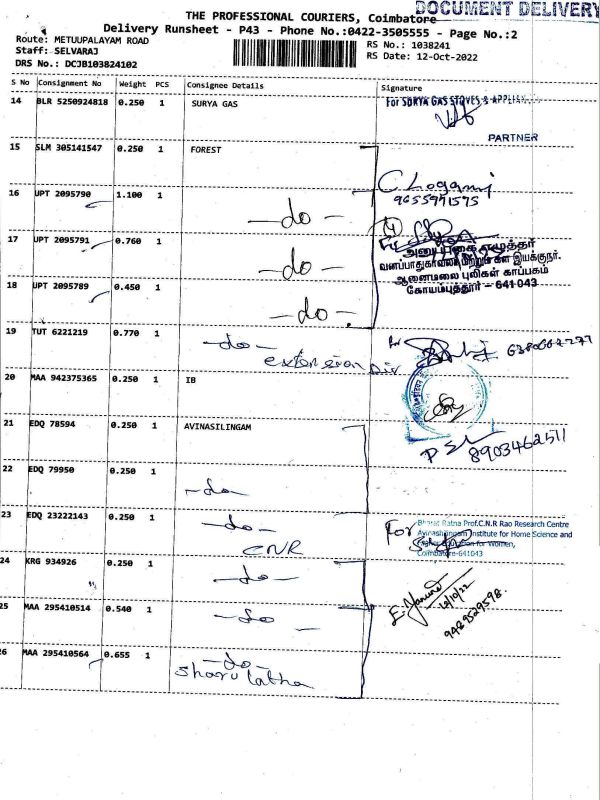 DOCUMENT DELIVERY
THE PROFESSIONAL COURIERS, Coimbatore
Delivery Runsheet - P43 - Phone No.:0422-3505555 - Page No.:2
Route: METUUPALAYAM ROAD
RS No.: 1038241
Staff: SELVARAJ
RS Date: 12-Oct-2022
DRS No.: DCJB103824102
S No Consignment No Weight PCS Consignee Details Signature
14 BLR 5250924818 0.250 1 SURYA GAS
For SURYA GAS STOVES & APPLIAN
PARTNER
15 SLM 305141547 0.250 1 FOREST
16 UPT 2095790 1.100 1 - do -
9655971575
17 UPT 2095791 0.760 1 - do -
வனப்பாதுகாவலர் மற்றும் கள இயக்குநர்.
ஆனைமலை புலிகள் காப்பகம்
கோயம்புத்தூர் - 641 043
18 UPT 2095789 0.450 1 - do -
19 TUT 6221219 0.770 1 - do -
extension Div
20 MAA 942375365 0.250 1 IB
21 EDQ 78594 0.250 1 AVINASILINGAM
8903462511
22 EDQ 79950 0.250 1 - do -
23 EDQ 23222143 0.250 1 - do -
CNR
For
Bharat Ratna Prof.C.N.R Rao Research Centre
Avinashilingam Institute for Home Science and
Higher Education for Women,
Coimbatore-641043
24 KRG 934926 0.250 1 - do -
12/10/22
25 MAA 295410514 0.540 1 - do -
9489529598.
26 MAA 295410564 0.655 1 - do -
Sharu latha